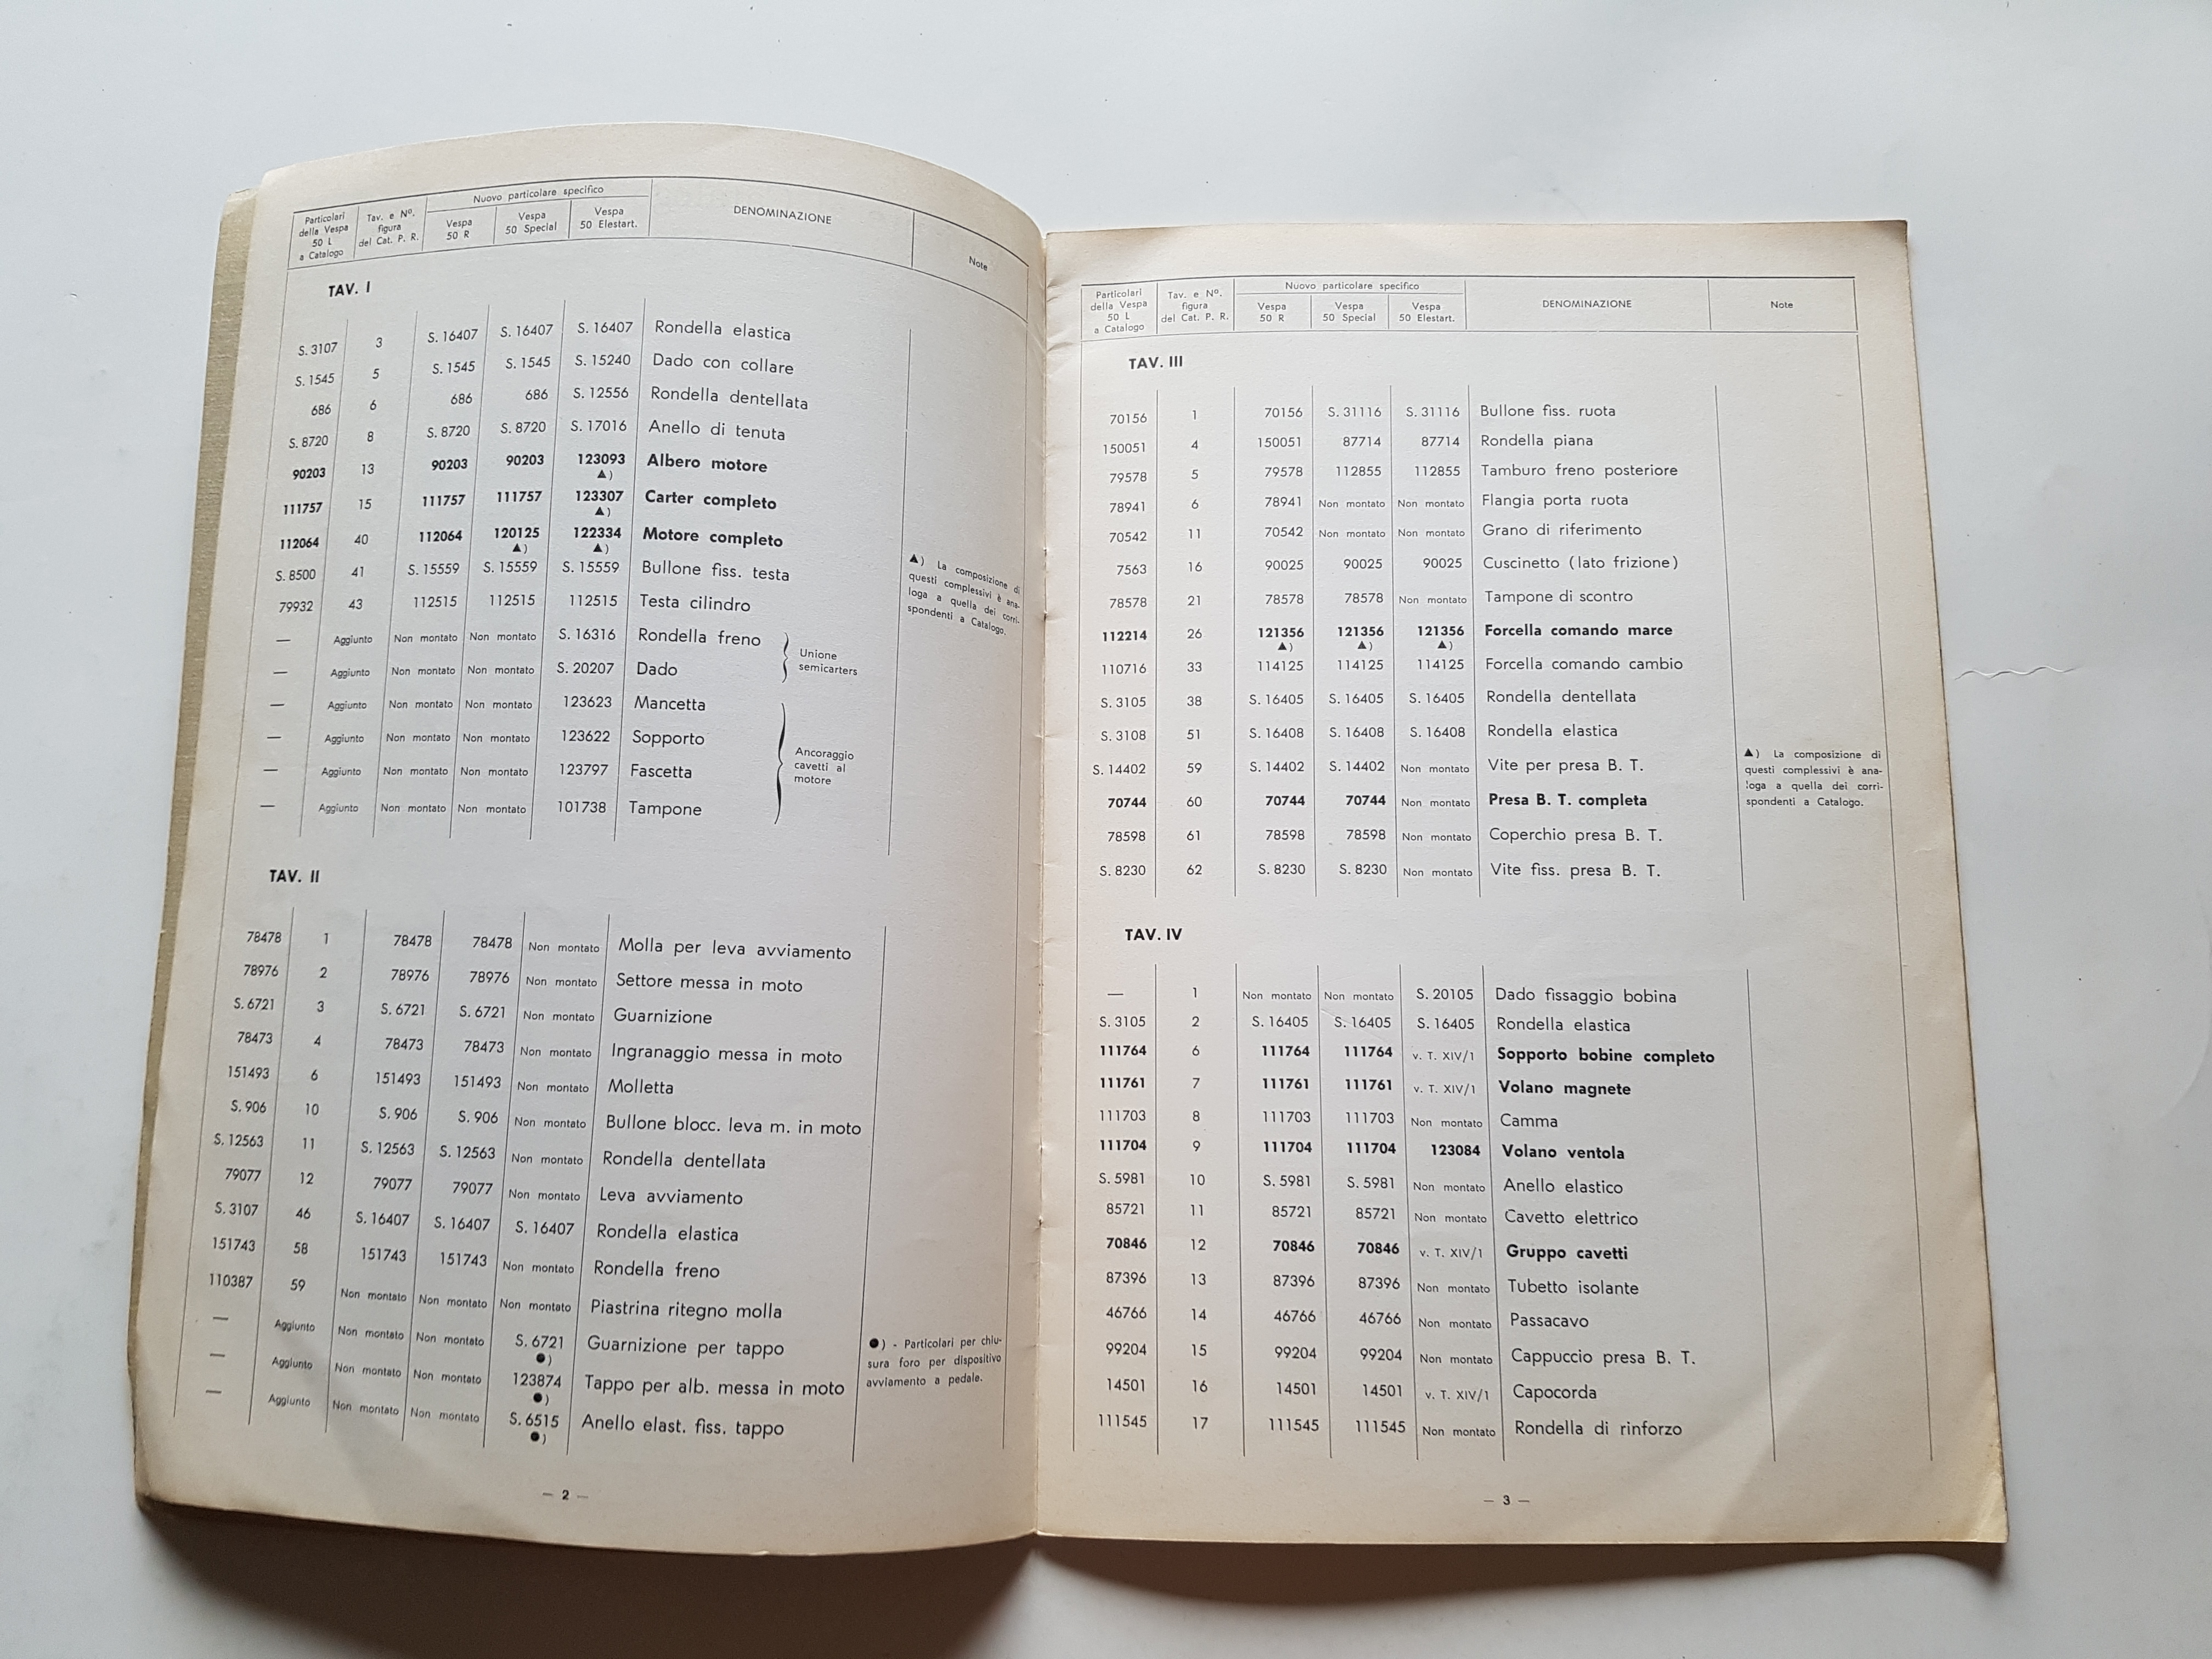 Particolari della Vespa 50 L a Catalogo | Tav. e Nº. figura del Cat. P. R. | Nuovo particolare specifico | DENOMINAZIONE | Note
Vespa 50 R | Vespa 50 Special | Vespa 50 Elestart.
TAV. I
S. 3107 3 S. 16407 S. 16407 S. 16407 Rondella elastica
S. 1545 5 S. 1545 S. 1545 S. 15240 Dado con collare
686 6 686 686 S. 12556 Rondella dentellata
S. 8720 8 S. 8720 S. 8720 S. 17016 Anello di tenuta
90203 13 90203 90203 123093 ▲) Albero motore
111757 15 111757 111757 123307 ▲) Carter completo
112064 40 112064 120125 ▲) 122334 ▲) Motore completo
S. 8500 41 S. 15559 S. 15559 S. 15559 Bullone fiss. testa
79932 43 112515 112515 112515 Testa cilindro
— Aggiunto Non montato Non montato S. 16316 Rondella freno
— Aggiunto Non montato Non montato S. 20207 Dado
Unione
semicarters
— Aggiunto Non montato Non montato 123623 Mancetta
— Aggiunto Non montato Non montato 123622 Sopporto
— Aggiunto Non montato Non montato 123797 Fascetta
— Aggiunto Non montato Non montato 101738 Tampone
Ancoraggio
cavetti al
motore
▲) La composizione di
questi complessivi è ana-
loga a quella dei corri-
spondenti a Catalogo.
TAV. II
78478 1 78478 78478 Non montato Molla per leva avviamento
78976 2 78976 78976 Non montato Settore messa in moto
S. 6721 3 S. 6721 S. 6721 Non montato Guarnizione
78473 4 78473 78473 Non montato Ingranaggio messa in moto
151493 6 151493 151493 Non montato Molletta
S. 906 10 S. 906 S. 906 Non montato Bullone blocc. leva m. in moto
S. 12563 11 S. 12563 S. 12563 Non montato Rondella dentellata
79077 12 79077 79077 Non montato Leva avviamento
S. 3107 46 S. 16407 S. 16407 S. 16407 Rondella elastica
151743 58 151743 151743 Non montato Rondella freno
110387 59 Non montato Non montato Non montato Piastrina ritegno molla
— Aggiunto Non montato Non montato S. 6721 ●) Guarnizione per tappo
— Aggiunto Non montato Non montato 123874 ●) Tappo per alb. messa in moto
— Aggiunto Non montato Non montato S. 6515 ●) Anello elast. fiss. tappo
●) - Particolari per chiu-
sura foro per dispositivo
avviamento a pedale.
— 2 —
Particolari della Vespa 50 L a Catalogo | Tav. e Nº. figura del Cat. P. R. | Nuovo particolare specifico | DENOMINAZIONE | Note
Vespa 50 R | Vespa 50 Special | Vespa 50 Elestart.
TAV. III
70156 1 70156 S. 31116 S. 31116 Bullone fiss. ruota
150051 4 150051 87714 87714 Rondella piana
79578 5 79578 112855 112855 Tamburo freno posteriore
78941 6 78941 Non montato Non montato Flangia porta ruota
70542 11 70542 Non montato Non montato Grano di riferimento
7563 16 90025 90025 90025 Cuscinetto (lato frizione)
78578 21 78578 78578 Non montato Tampone di scontro
112214 26 121356 ▲) 121356 ▲) 121356 ▲) Forcella comando marce
110716 33 114125 114125 114125 Forcella comando cambio
S. 3105 38 S. 16405 S. 16405 S. 16405 Rondella dentellata
S. 3108 51 S. 16408 S. 16408 S. 16408 Rondella elastica
S. 14402 59 S. 14402 S. 14402 Non montato Vite per presa B. T.
70744 60 70744 70744 Non montato Presa B. T. completa
78598 61 78598 78598 Non montato Coperchio presa B. T.
S. 8230 62 S. 8230 S. 8230 Non montato Vite fiss. presa B. T.
▲) La composizione di
questi complessivi è ana-
loga a quella dei corri-
spondenti a Catalogo.
TAV. IV
— 1 Non montato Non montato S. 20105 Dado fissaggio bobina
S. 3105 2 S. 16405 S. 16405 S. 16405 Rondella elastica
111764 6 111764 111764 v. T. XIV/1 Sopporto bobine completo
111761 7 111761 111761 v. T. XIV/1 Volano magnete
111703 8 111703 111703 Non montato Camma
111704 9 111704 111704 123084 Volano ventola
S. 5981 10 S. 5981 S. 5981 Non montato Anello elastico
85721 11 85721 85721 Non montato Cavetto elettrico
70846 12 70846 70846 v. T. XIV/1 Gruppo cavetti
87396 13 87396 87396 Non montato Tubetto isolante
46766 14 46766 46766 Non montato Passacavo
99204 15 99204 99204 Non montato Cappuccio presa B. T.
14501 16 14501 14501 v. T. XIV/1 Capocorda
111545 17 111545 111545 Non montato Rondella di rinforzo
— 3 —